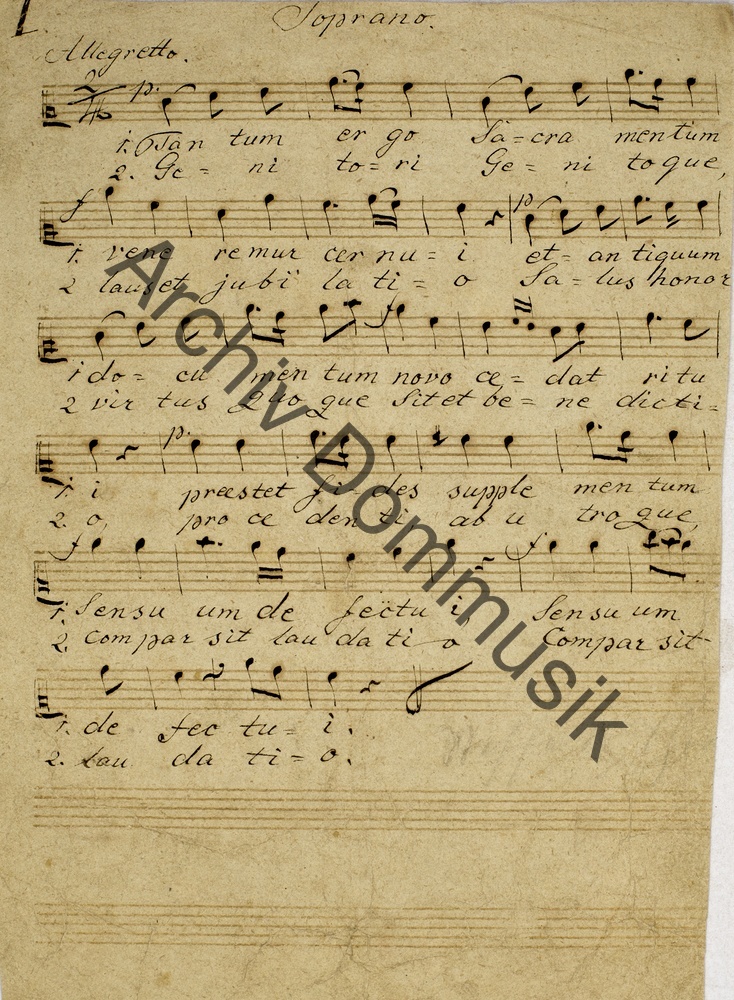 Soprano.
Allegretto.
2/4 p.
1. Tan tum er go Sa = cra mentum
2. Ge = ni to = ri Ge = ni toque,
f p
1. vene remur cer nu = i et = an tiquum
2 lauset jubi la ti = o Sa = lus honor
f
1 do = cu men tum novo ce = dat ritu
2 vir tus quo que Sitet be = ne dicti =
p.
1. i præstet fi = des supple men tum
2. o, pro ce den ti ab u troque,
f f
1. Sensu um de fectu i, Sensu um
2. Compar sit lau da ti o Compar sit
1. de fec tu = i.
2. Lau da ti = o.
Archiv Dommusik